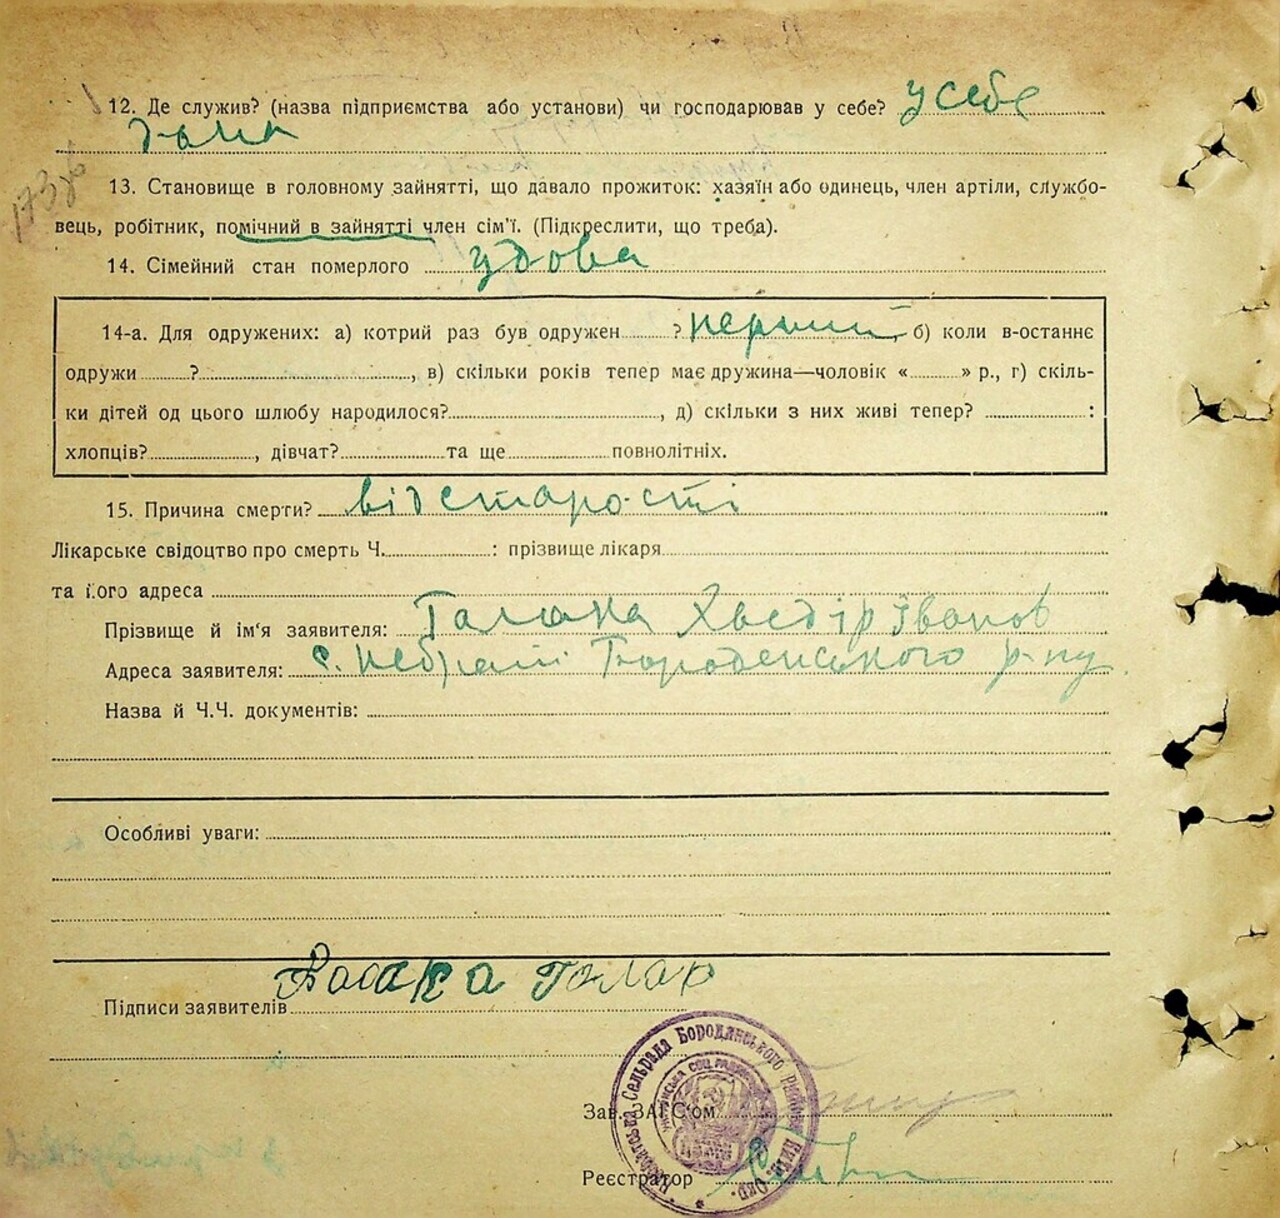 12. Де служив? (назва підприємства або установи) чи господарював у себе? у себе
дома
173зв
13. Становище в головному зайнятті, що давало прожиток: хазяїн або одинець, член артіли, службо-
вець, робітник, помічний в зайнятті член сім'ї. (Підкреслити, що треба).
14. Сімейний стан померлого удова
14-а. Для одружених: а) котрий раз був одружен ? перший, б) коли в-останнє
одружи ? , в) скільки років тепер має дружина—чоловік « » р., г) скіль-
ки дітей од цього шлюбу народилося? , д) скільки з них живі тепер? :
хлопців? , дівчат? та ще повнолітніх.
15. Причина смерти? від старости
Лікарське свідоцтво про смерть Ч. : прізвище лікаря
та його адреса
Прізвище й ім'я заявителя: Галака Хведір Іванов
Адреса заявителя: с. Небрат Бороденського р-ну
Назва й Ч.Ч. документів:
Особливі уваги:
Підписи заявителів
Сельрада Бородянського району Київ. Окр.
Зав. ЗАГС'ом
Реєстратор